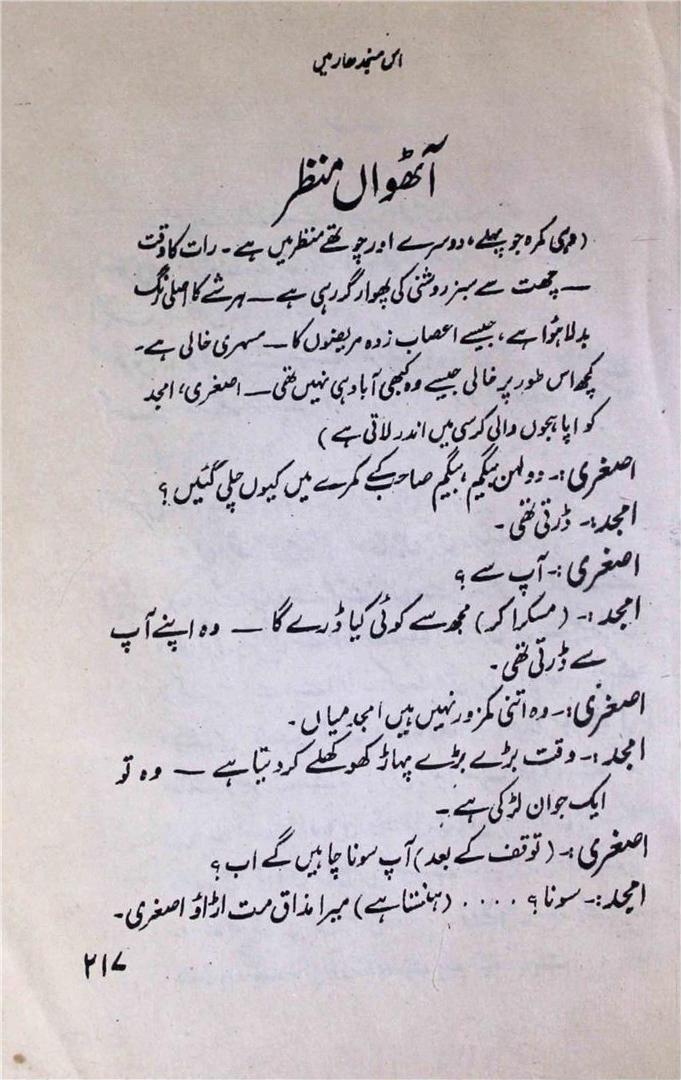 اس منجدھار میں
آٹھواں منظر
(وہی کمرہ جو پہلے، دوسرے اور چوتھے منظر میں ہے۔ رات کا وقت
— چھت سے سبز روشنی کی پھوار گر رہی ہے — ہر شے کا اصلی رنگ
بدلا ہوا ہے، جیسے اعصاب زدہ مریضوں کا — مسہری خالی ہے۔
کچھ اس طور پر خالی جیسے وہ کبھی آباد ہی نہیں تھی — اصغری، امجد
کو اپاہجوں والی کرسی میں اندر لاتی ہے)
اصغری:۔ دولہن بیگم، بیگم صاحب کے کمرے میں کیوں چلی گئیں؟
امجد:۔ ڈرتی تھی۔
اصغری:۔ آپ سے؟
امجد:۔ (مسکرا کر) مجھ سے کوئی کیا ڈرے گا — وہ اپنے آپ
سے ڈرتی تھی۔
اصغری:۔ وہ اتنی کمزور نہیں ہیں امجد میاں۔
امجد:۔ وقت بڑے بڑے پہاڑ کھوکھلے کر دیتا ہے — وہ تو
ایک جوان لڑکی ہے۔
اصغری:۔ (توقف کے بعد) آپ سونا چاہیں گے اب؟
امجد:۔ سونا؟ .... (ہنستا ہے) میرا مذاق مت اڑاؤ اصغری۔
۲۱۷